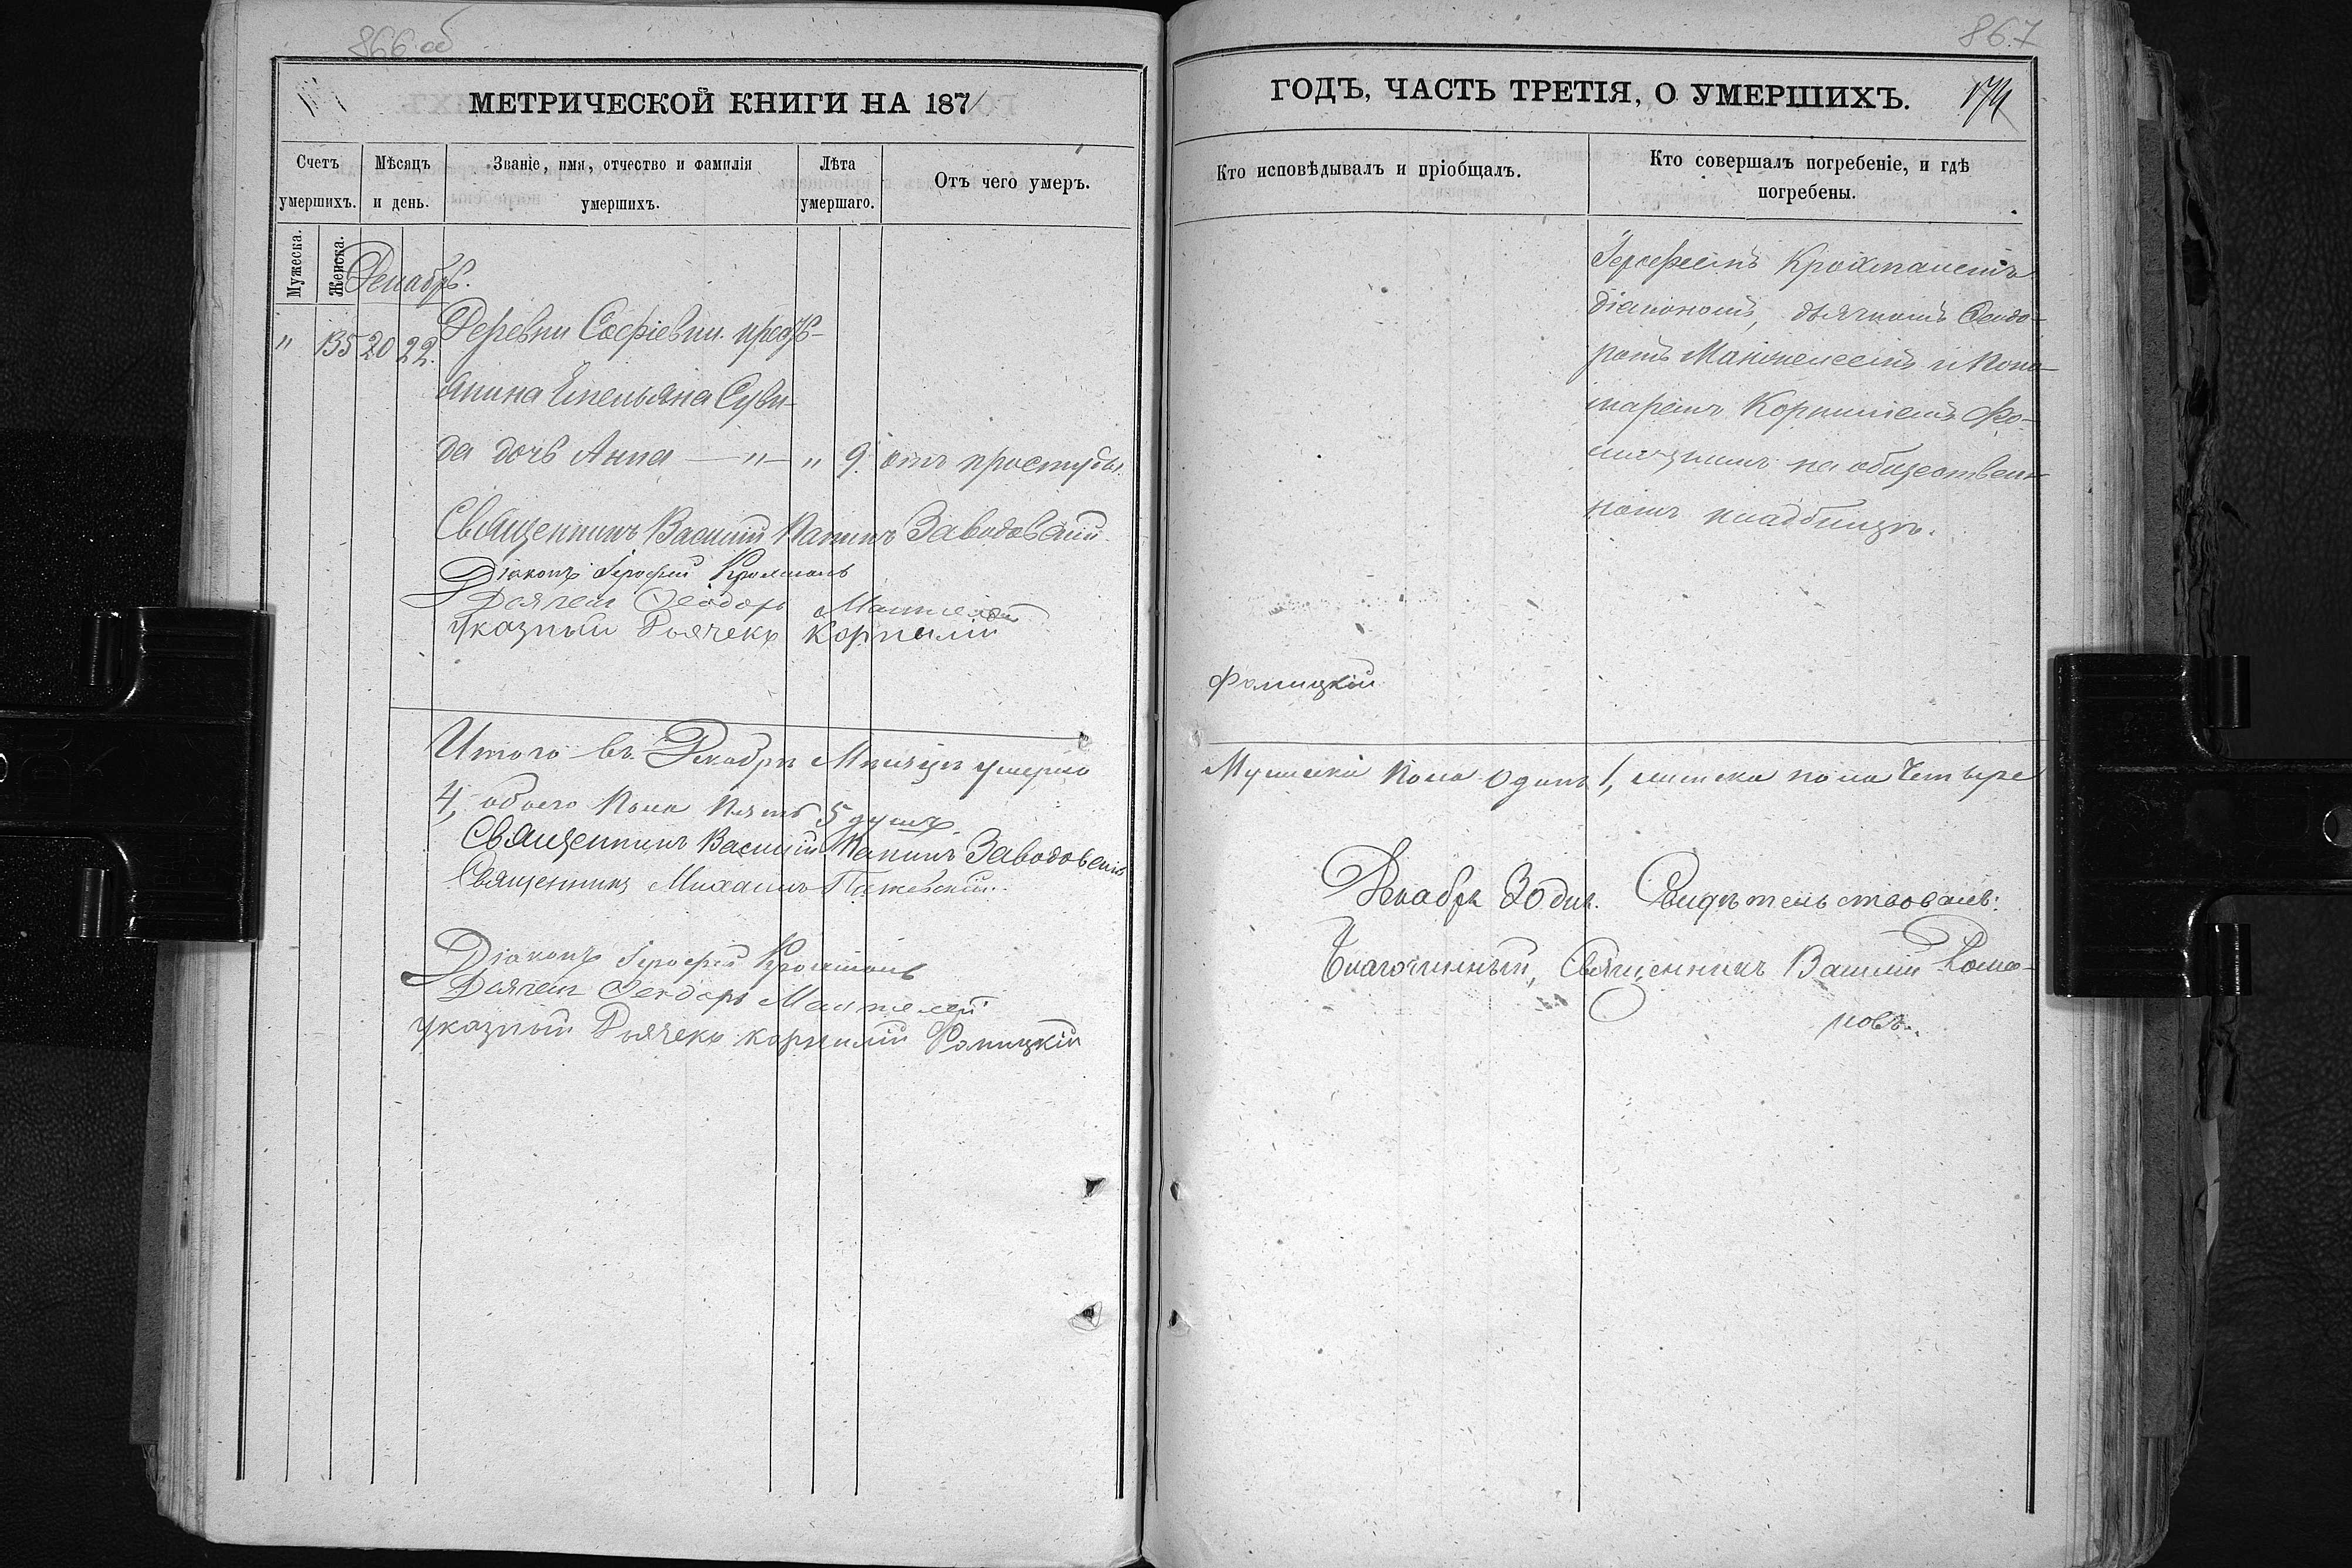 866 об
МЕТРИЧЕСКОЙ КНИГИ НА 1871
Счетъ умершихъ.
Мѣсяцъ и день.
Званіе, имя, отчество и фамилія умершихъ.
Лѣта умершаго.
Отъ чего умеръ.
Мужеска.
Женска.
Декабрь.
" 135 20 22. Деревни Софіевки
Емельяна
да дочь Анна — " — " 9. отъ простуды.
Священникъ Василій Заводовскій
Діаконъ Іерофей
Дьячекъ Ѳеодоръ
Указный Дьячекъ Корнилій
Итого въ Декабрѣ Мѣсяцѣ умерло
4, обоего пола пять 5 душъ.
Священникъ Василій Заводовскій
Священникъ Михаилъ
Діаконъ Іерофей
Дьячекъ Ѳеодоръ
Указный Дьячекъ Корнилій Фомицкій
867
ГОДЪ, ЧАСТЬ ТРЕТІЯ, О УМЕРШИХЪ.
Кто исповѣдывалъ и пріобщалъ.
Кто совершалъ погребеніе, и гдѣ погребены.
Іерофеемъ
діакономъ, дьячкомъ Ѳеодо-
ромъ и поно-
маремъ Корниліемъ Фо-
мицкимъ на обществен-
номъ кладбищѣ.
Фомицкій
Мужеска пола одинъ 1, женска пола четыре
Декабря 30 дня. Свидѣтельствовалъ:
Благочинный, Священникъ Василій Рома-
новъ.